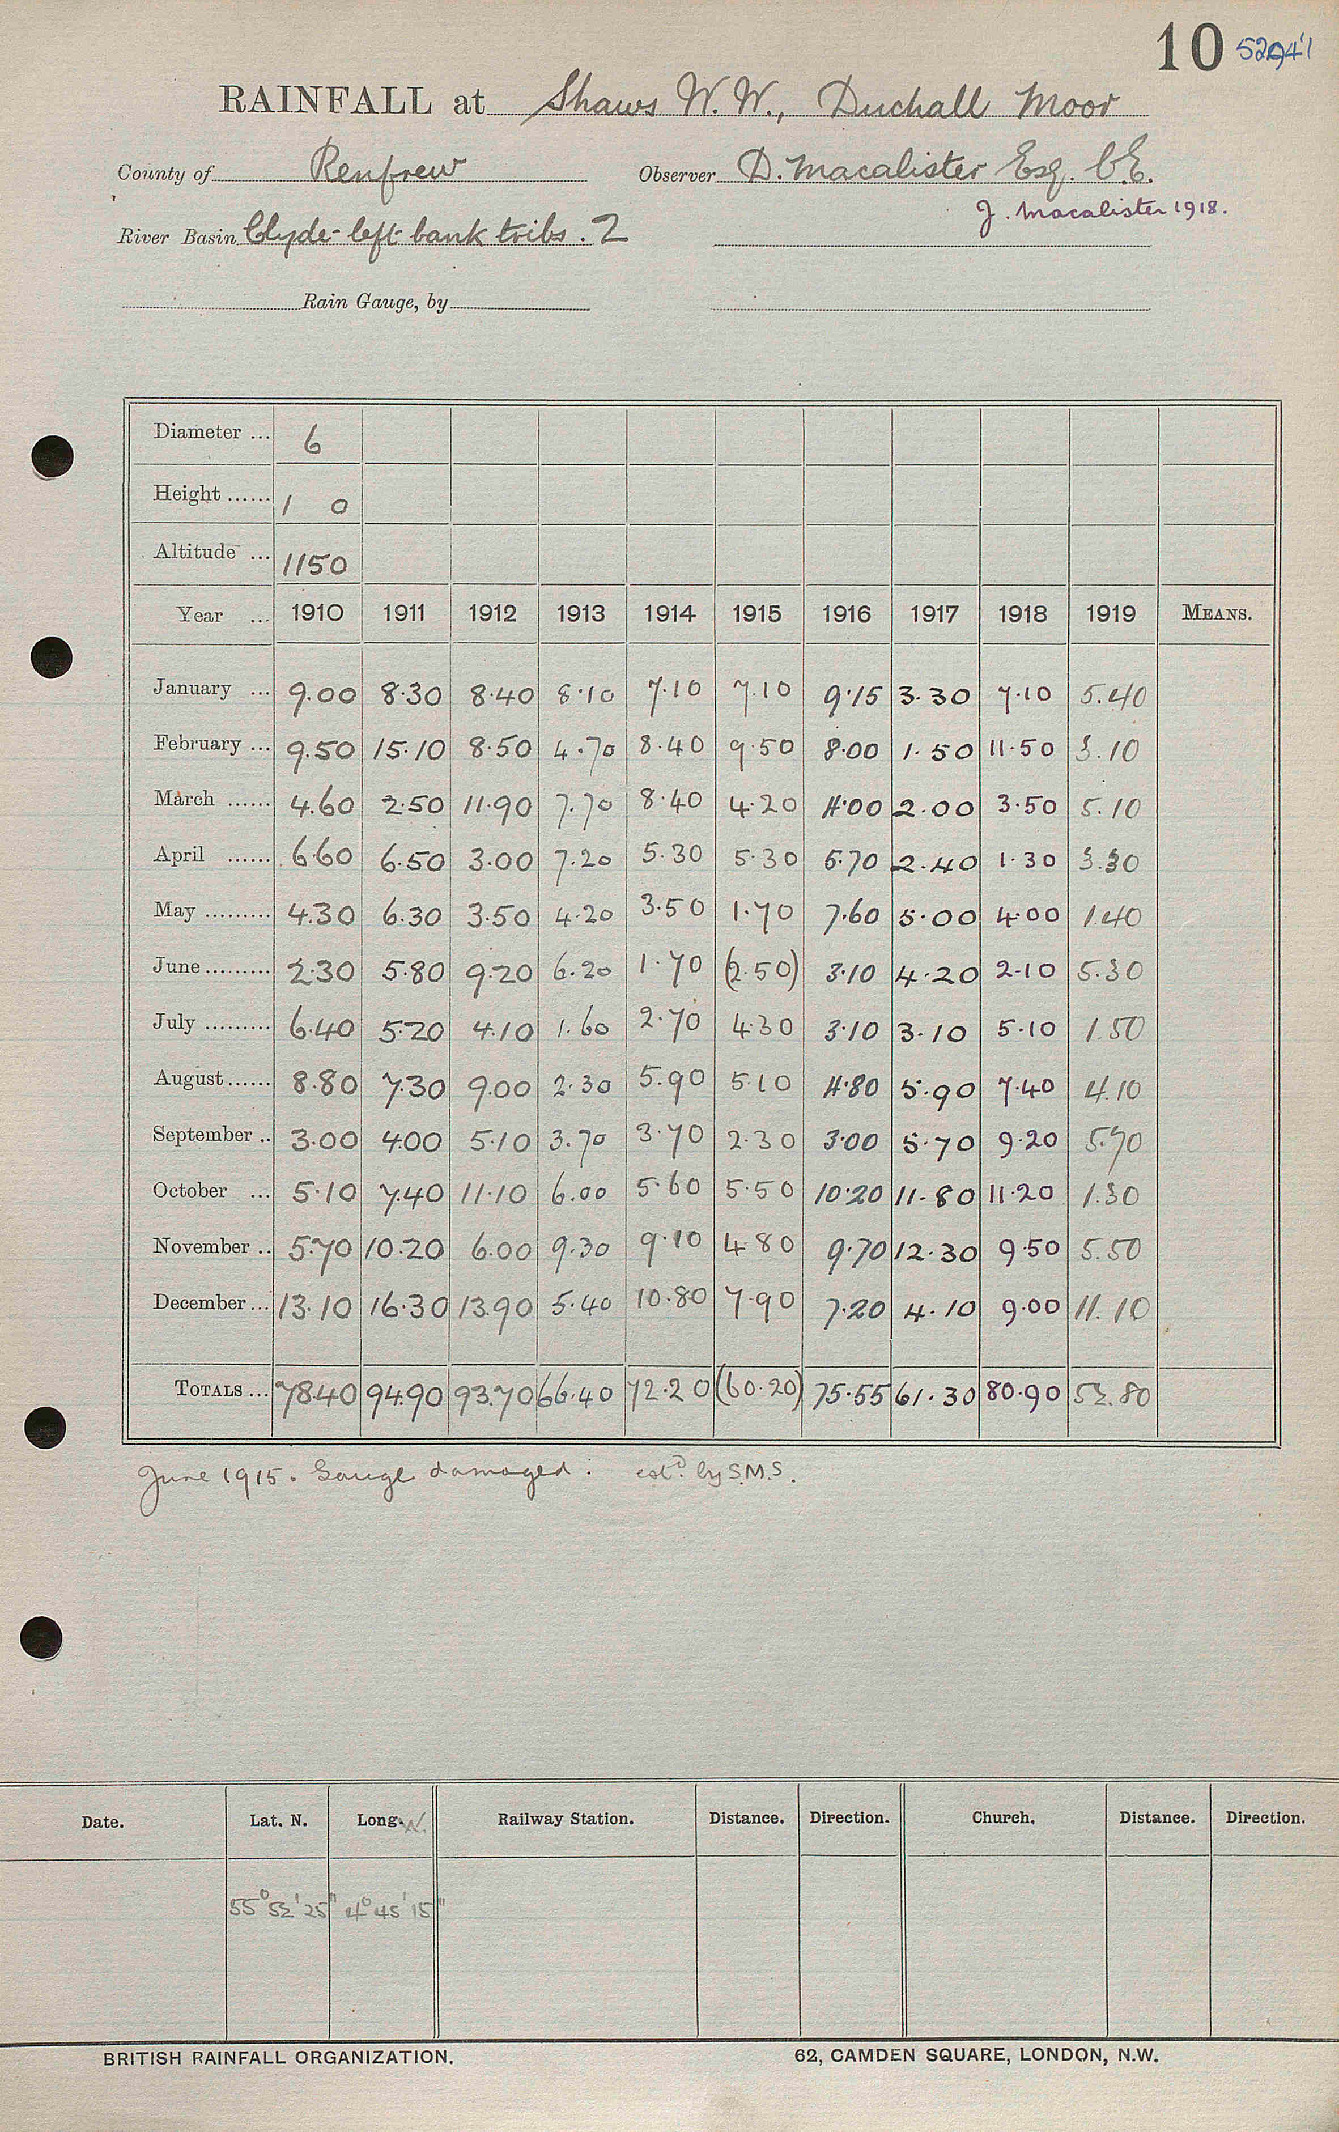 10 52941
RAINFALL at Shaws W. W., Duchall Moor
County of Renfrew Observer D. Macalister Esq. C.E.
J. Macalister 1918.
River Basin Clyde-left bank tribs. 2
Rain Gauge, by
Diameter ... 6
Height ...... 1 0
Altitude ... 1150
Year ... 1910 1911 1912 1913 1914 1915 1916 1917 1918 1919 MEANS.
January ... 9.00 8.30 8.40 8.10 7.10 7.10 9.15 3.30 7.10 5.40
February ... 9.50 15.10 8.50 4.70 8.40 9.50 8.00 1.50 11.50 3.10
March ...... 4.60 2.50 11.90 7.70 8.40 4.20 4.00 2.00 3.50 5.10
April ...... 6.60 6.50 3.00 7.20 5.30 5.30 5.70 2.40 1.30 3.30
May ......... 4.30 6.30 3.50 4.20 3.50 1.70 7.60 5.00 4.00 1.40
June ......... 2.30 5.80 9.20 6.20 1.70 (2.50) 3.10 4.20 2.10 5.30
July ......... 6.40 5.20 4.10 1.60 2.70 4.30 3.10 3.10 5.10 1.50
August ...... 8.80 7.30 9.00 2.30 5.90 5.10 4.80 5.90 7.40 4.10
September .. 3.00 4.00 5.10 3.70 3.70 2.30 3.00 5.70 9.20 5.70
October ... 5.10 7.40 11.10 6.00 5.60 5.50 10.20 11.80 11.20 1.30
November .. 5.70 10.20 6.00 9.30 9.10 4.80 9.70 12.30 9.50 5.50
December ... 13.10 16.30 13.90 5.40 10.80 7.90 7.20 4.10 9.00 11.10
TOTALS ... 78.40 94.90 93.70 66.40 72.20 (60.20) 75.55 61.30 80.90 52.80
June 1915. Gauge damaged. estd. by S.M.S.
Date. Lat. N. Long. W. Railway Station. Distance. Direction. Church. Distance. Direction.
55° 52' 25" 4° 45' 15"
BRITISH RAINFALL ORGANIZATION. 62, CAMDEN SQUARE, LONDON, N.W.